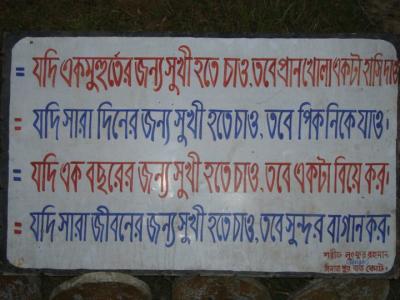 = যদি একমুহুর্তের জন্য সুখী হতে চাও, তবে প্রান খোলা একটা হাসি দাও
= যদি সারা দিনের জন্য সুখী হতে চাও, তবে পিকনিকে যাও।
= যদি এক বছরের জন্য সুখী হতে চাও, তবে একটা বিয়ে কর।
= যদি সারা জীবনের জন্য সুখী হতে চাও, তবে সুন্দর বাগান কর।
শহীদ লুৎফুর রহমান